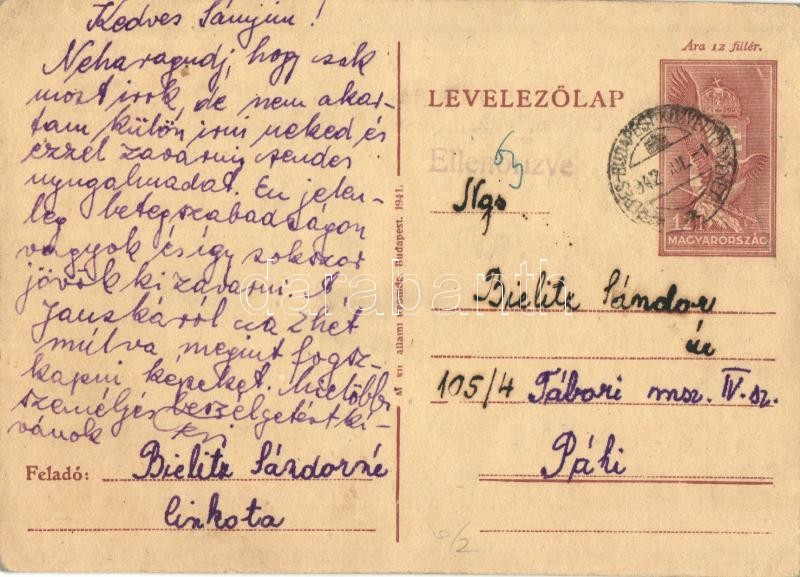 Kedves Sányim!
Neharagudj, hogy csak
most irok, de nem akar-
tam külön irni neked és
ezzel zavarni csendes
nyugalmadat. Én jelen-
leg betegszabadságon
vagyok és így sokszor
jövök ki zavarni. A
Janskáról  2 hét
múlva megint fogsz
kapni képeket. Mielőbbi
személyes beszélgetést ki-
vánok
Feladó: Bielitz Sándorné
Cinkota
M. kir. állami nyomda, Budapest. 1941.
Ára 12 fillér.
LEVELEZŐLAP
Ellenőrizve
63
MAGYARORSZÁG
12
Ngs
Bielitz Sándor
úr
105/4 Tábori msz. IV. sz.
Páhi
darabanth.com